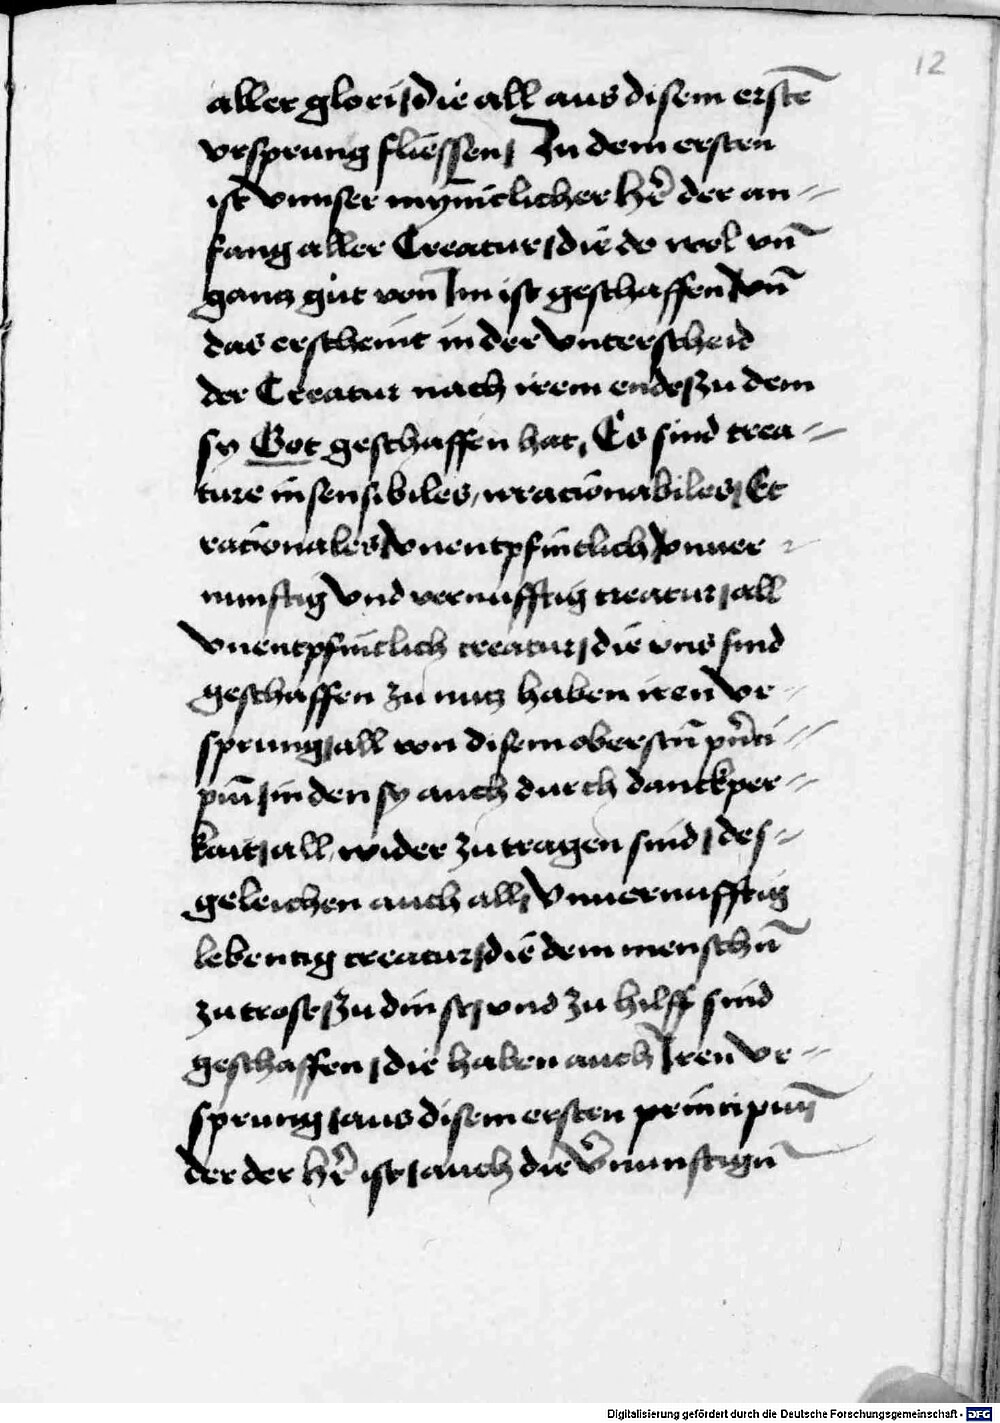 12
aller glori / die all aus disem erstē
vrsprung fliessen / In dem ersten
ist vnnser mynniclicher hr̄ der an=
fang aller Creatur / die do wol vn̄
gantz gůt von Im ist geschaffen / vn̄
das erscheint in der vnterscheid
der Creatur nach irem ende / zu dem
sy Got geschaffen hat, Es sind crea=
ture insensibiles, irracionabiles / Et
racionales / vnentpfintlich / vnuer=
nunftig vnd vernufftig creatur / all
vnentpfintlich creatur / die vns sind
geschaffen zu nutz haben iren vr=
sprung / all von disem oberstn̄ prīci=
piū / in den sy auch durch danckper=
kait / all, wider zu tragen sind / des=
geleichen auch all / vnuernufftig
lebentig creatur / die dem menschn̄
zu trost / zu dinst / vnd zu hilff sind
geschaffen / die haben auch Iren vr=
sprung / aus disem ersten principiū
der der hr̄ ist / auch die v̄nunftign̄
Digitalisierung gefördert durch die Deutsche Forschungsgemeinschaft - DFG